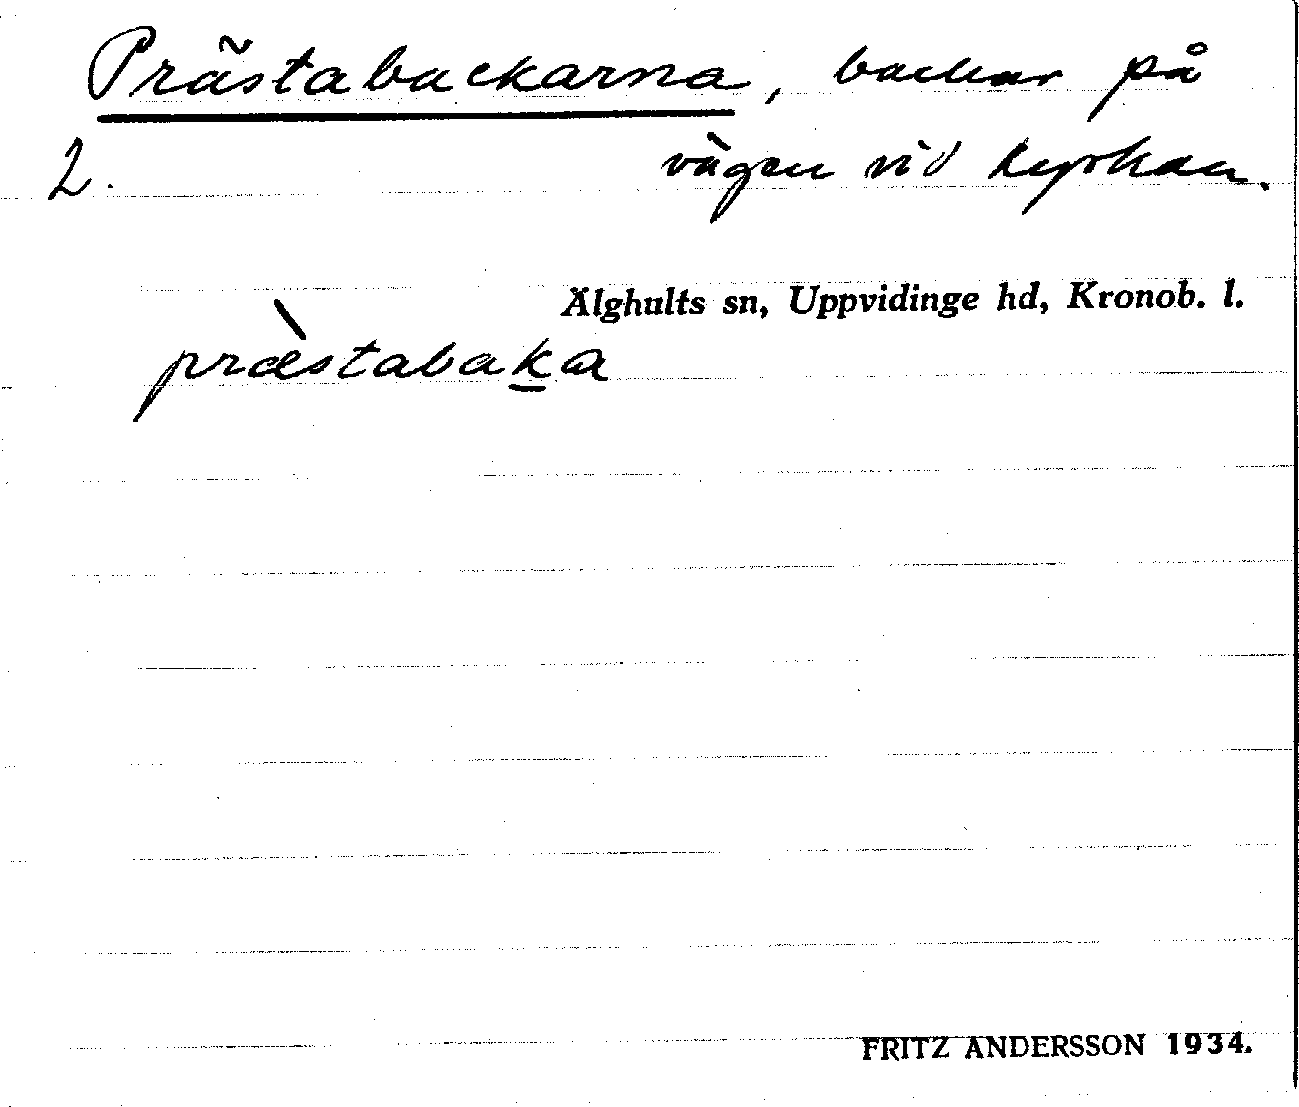 Prästabackarna, backar på
2. vägen vid kyrkan.
Älghults sn, Uppvidinge hd, Kronob. l.
præ̀stabak̲a
FRITZ ANDERSSON 1934.